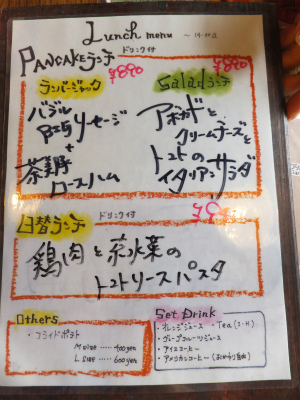 Lunch menu ~14:30迄
PANCAKEランチ ドリンク付
ランバージャック ¥890
バジル
ソーセージ
+
茶美野
ロースハム
Saladランチ ¥890
アボカドと
クリームチーズと
トマトの
イタリアンサラダ
日替ランチ ドリンク付
鶏肉と水菜の
トマトソースパスタ
Others
・フライドポテト
M size ..... 400yen
L size ..... 600yen
Set Drink
・オレンジジュース ・Tea (I・H)
・グレープフルーツジュース
・アイスコーヒー
・アメリカンコーヒー (おかわり自由)